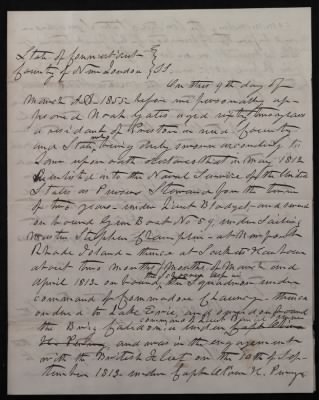 State of Connecticut }
County of New London } SS.
On this 9th day of
March A.D. 1855 before me personally ap-
peared Noah Gates aged sixty two years
a resident of Preston in said County
and State, who being duly sworn according to
Law upon oath declares that in May 1812
enlisted into the Naval Service of the United
States as Pursers Steward for the term
of two years - under Lieut Blodget - and served
on board Gun Boat No 89, under Sailing
Master Stephen Champlin - at Newport
Rhode Island - thence at Sackets Harbour
about two months (months of March and
April 1813 on board the
Squadron under
command of Commodore Chauncy - thence
ordered to Lake Erie, and served on board
command of Lieut
the Brig Caledonia under
and was in the engagement
with the British Fleet on the 10th of Sep-
tember 1813 under Capt Oliver H. Perry